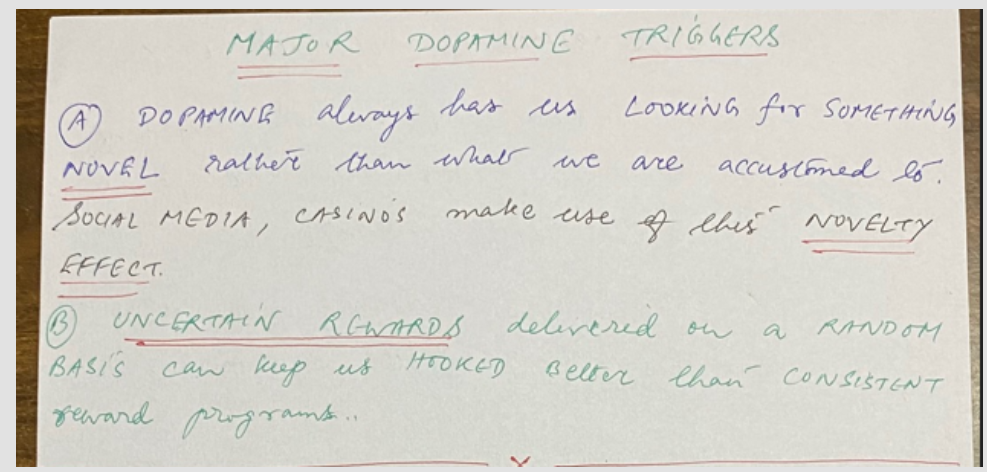 MAJOR DOPAMINE TRIGGERS
(A) DOPAMINE always has us LOOKING for SOMETHING
NOVEL rather than what we are accustomed to.
SOCIAL MEDIA, CASINO'S make use of this NOVELTY
EFFECT.
(B) UNCERTAIN REWARDS delivered on a RANDOM
BASIS can keep us HOOKED Better than CONSISTENT
reward programs..